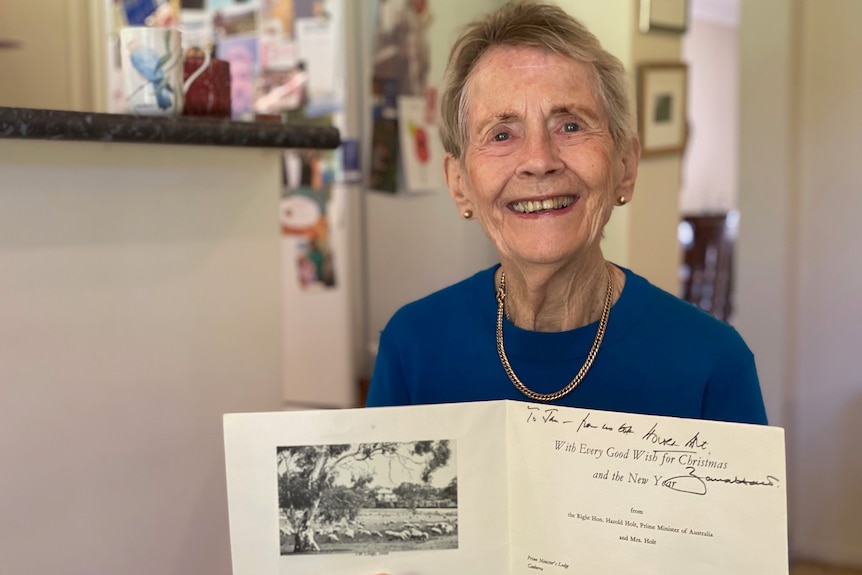 To Jan - from us both
With Every Good Wish for Christmas
and the New Year
from
the Right Hon. Harold Holt, Prime Minister of Australia
and Mrs. Holt
Prime Minister's Lodge
Canberra